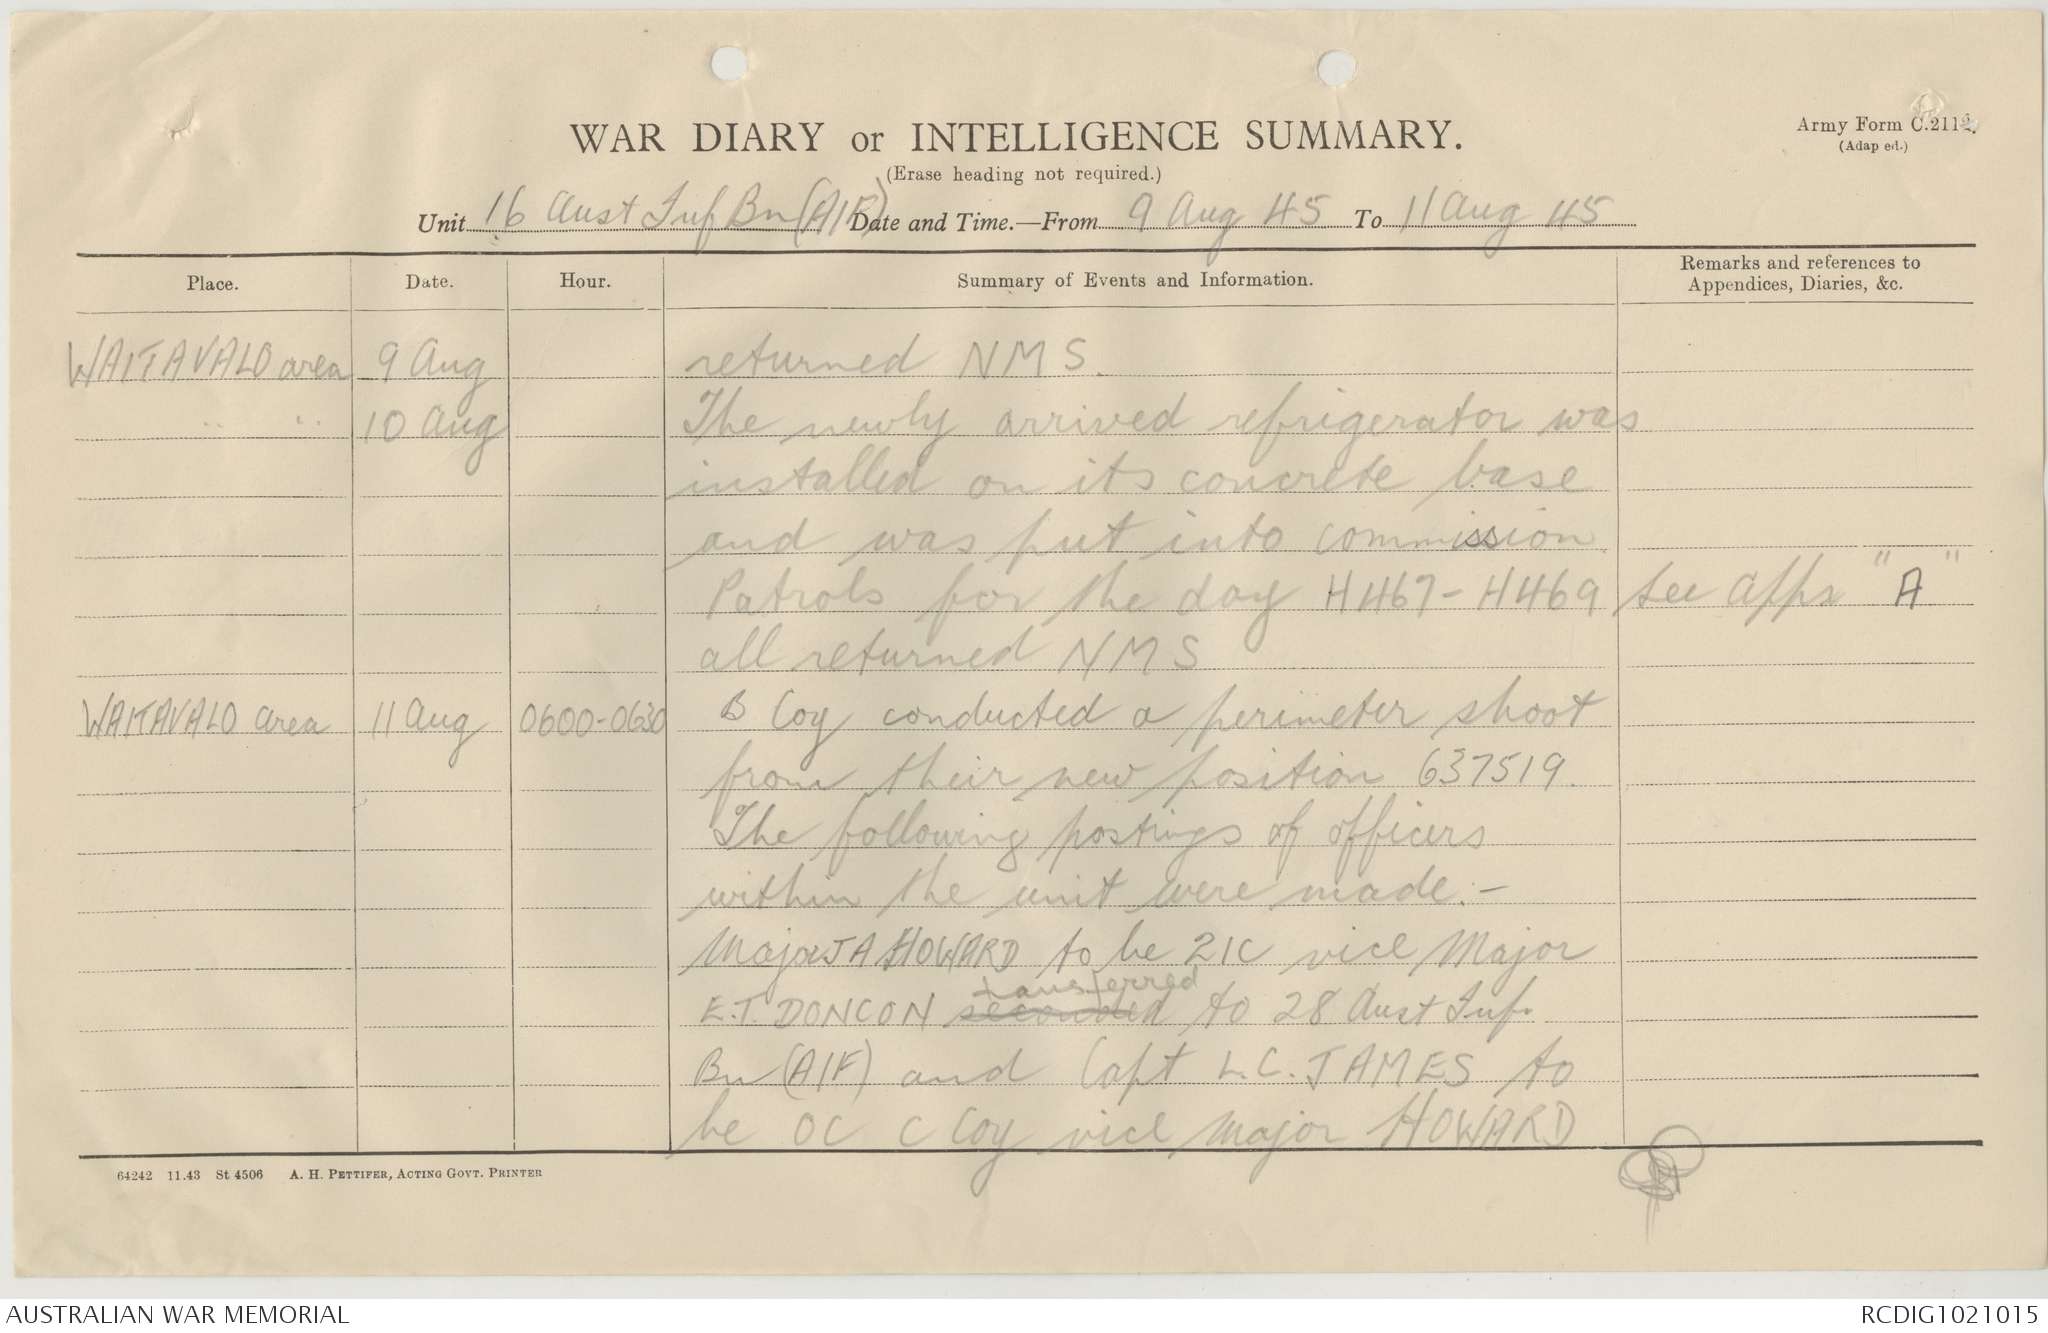 WAR DIARY or INTELLIGENCE SUMMARY.
Army Form C.2112.
(Erase heading not required.)
(Adapted.)
Unit 16 Aust Inf Bn (AIF) Date and Time.—From 9 Aug 45 To 11 Aug 45
Place. Date. Hour. Summary of Events and Information. Remarks and references to Appendices, Diaries, &c.
WAITAVALO area 9 Aug returned NMS.
" " 10 Aug The newly arrived refrigerator was
installed on its concrete base
and was put into commission.
Patrols for the day H467-H469 See Appx "A"
all returned NMS
WAITAVALO area 11 Aug 0600-0630 B Coy conducted a perimeter shoot
from their new position 637519.
The following postings of officers
within the unit were made:-
Major J A HOWARD to be 2IC vice Major
E.T. DONCON seconded transferred to 28 Aust Inf
Bn (AIF) and Capt L.C. JAMES to
be OC C Coy vice Major HOWARD
64242 11.43 St 4506 A. H. PETTIFER, ACTING GOVT. PRINTER
AUSTRALIAN WAR MEMORIAL
RCDIG1021015